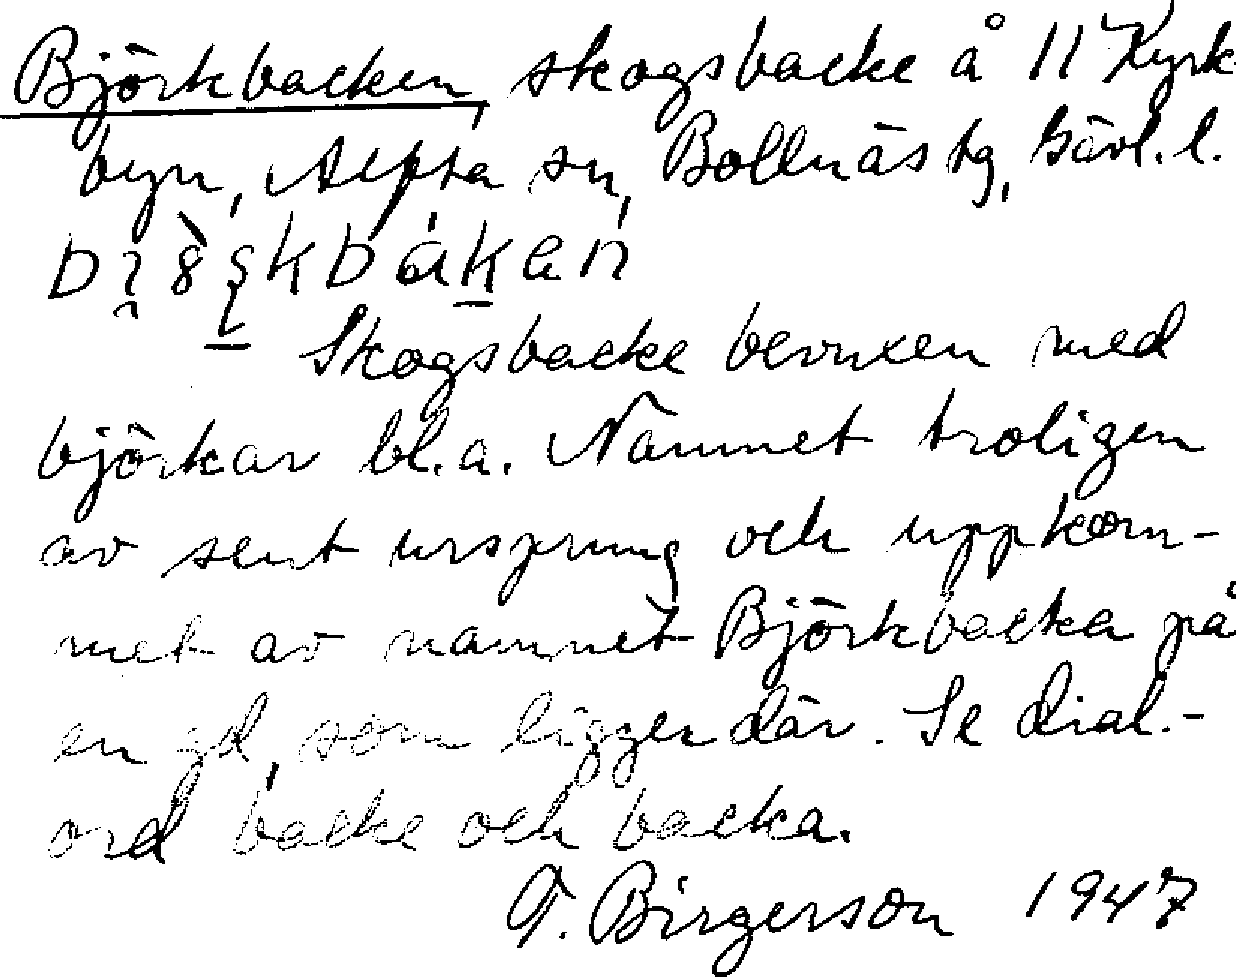 Björkbacken, skogsbacke å 11 Kyrk
byn, Alfta sn, Bollnäs tg, Gävl.l.
Skogsbacke bevuxen med
björkar bl.a. Namnet troligen
av sent ursprung och uppkom-
met av namnet Björkbacka på
en gd, som ligger där. Se dial.-
ord backe och backa.
T. Birgerson 1947